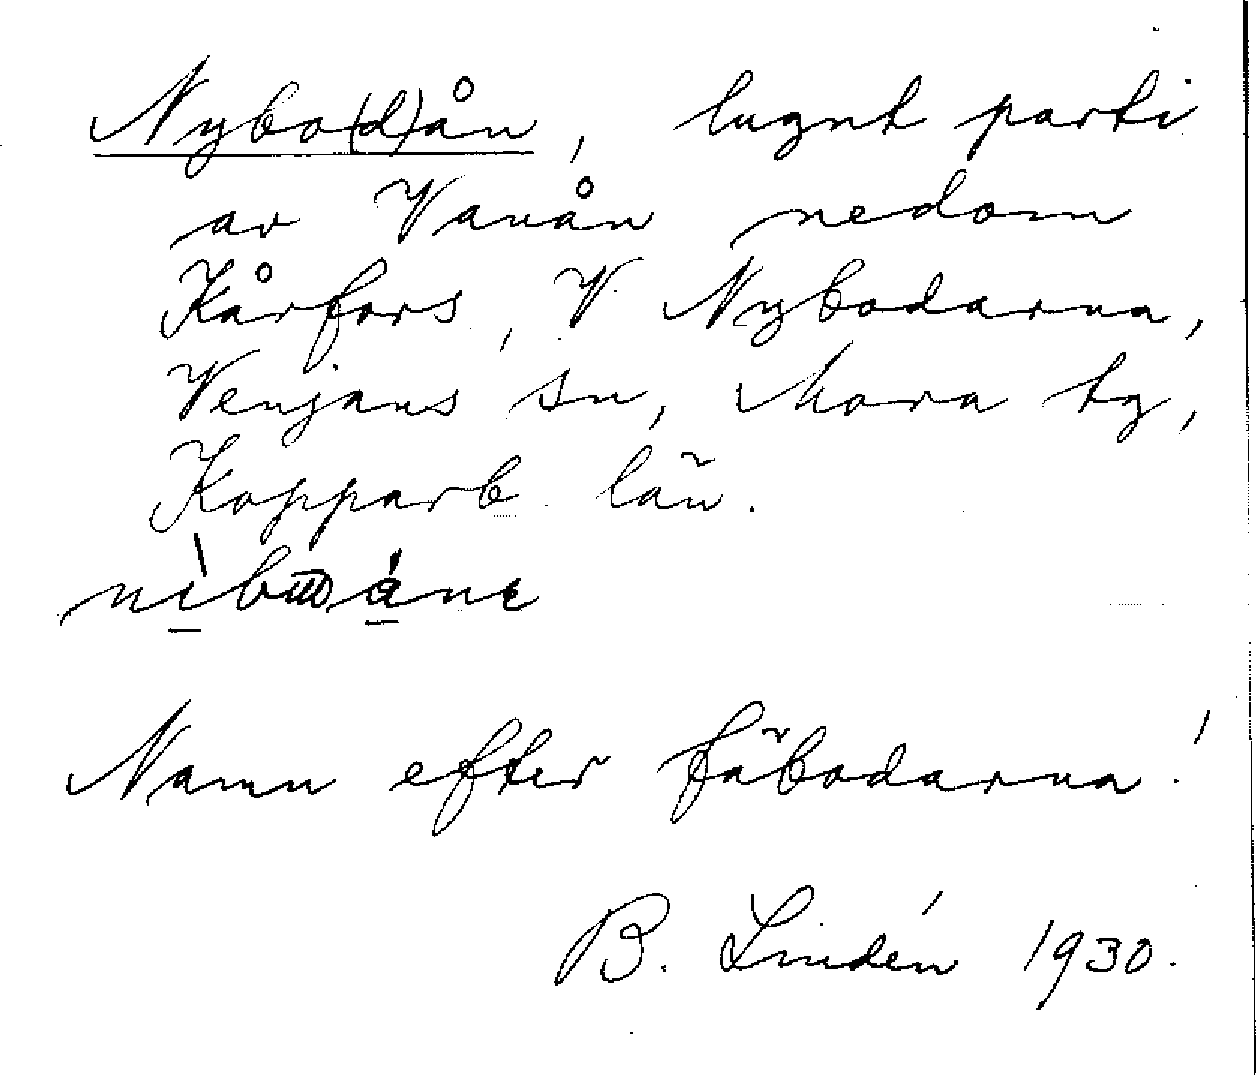 Nybo(d)ån, lugnt parti
av Vanån nedom
Kårfors, V. Nybodarna,
Venjans sn, Mora tg,
Kopparb. län.
Namn efter fäbodarna!
B. Lindén 1930.